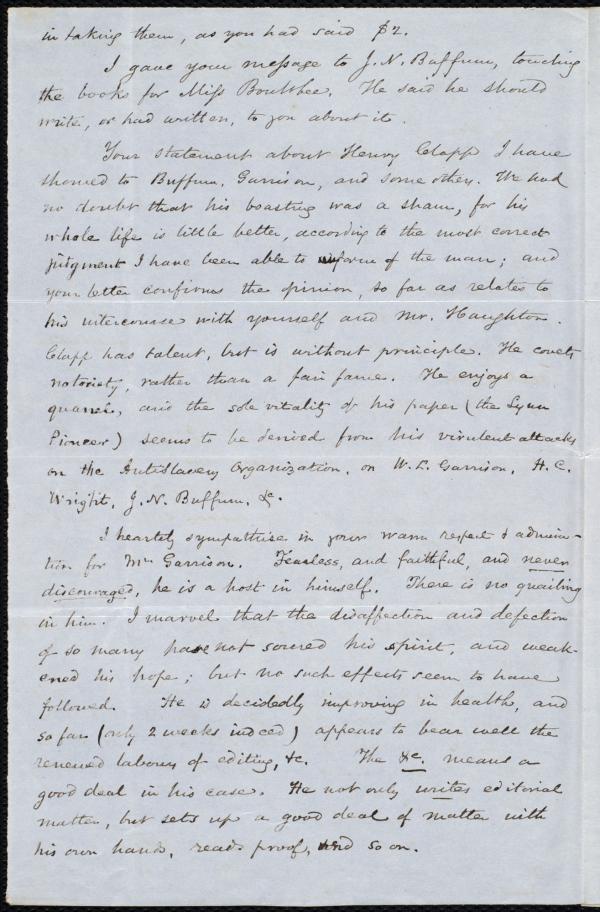 in taking them, as you had said $2.
I gave your message to J. N. Buffum, touching
the books for Miss Boultbee. He said he should
write, or had written, to you about it.
Your statement about Henry Clapp I have
showed to Buffum, Garrison, and some others. We had
no doubt that his boasting was a sham, for his
whole life is little better, according to the most correct
judgment I have been able to form of the man; and
your letter confirms the opinion, so far as relates to
his intercourse with yourself and Mr. Haughton.
Clapp has talent, but is without principle. He covets
notoriety, rather than a fair fame. He enjoys a
quarrel, and the sole vitality of his paper (the Lynn
Pioneer) seems to be derived from his virulent attacks
on the Antislavery Organization, on W. L. Garrison, H. C.
Wright, J. N. Buffum, &c.
I heartily sympathise in your warm respect & admira-
tion for Mr Garrison. Fearless, and faithful, and never
discouraged, he is a host in himself. There is no quailing
in him. I marvel that the disaffection and defection
of so many have not soured his spirit, and weak-
ened his hope; but no such effects seem to have
followed. He is decidedly improving in health, and
so far (only 2 weeks indeed) appears to bear well the
renewed labours of editing, &c. The &c. means a
good deal in his case. He not only writes editorial
matter, but sets up a good deal of matter with
his own hands, reads proof, and so on.